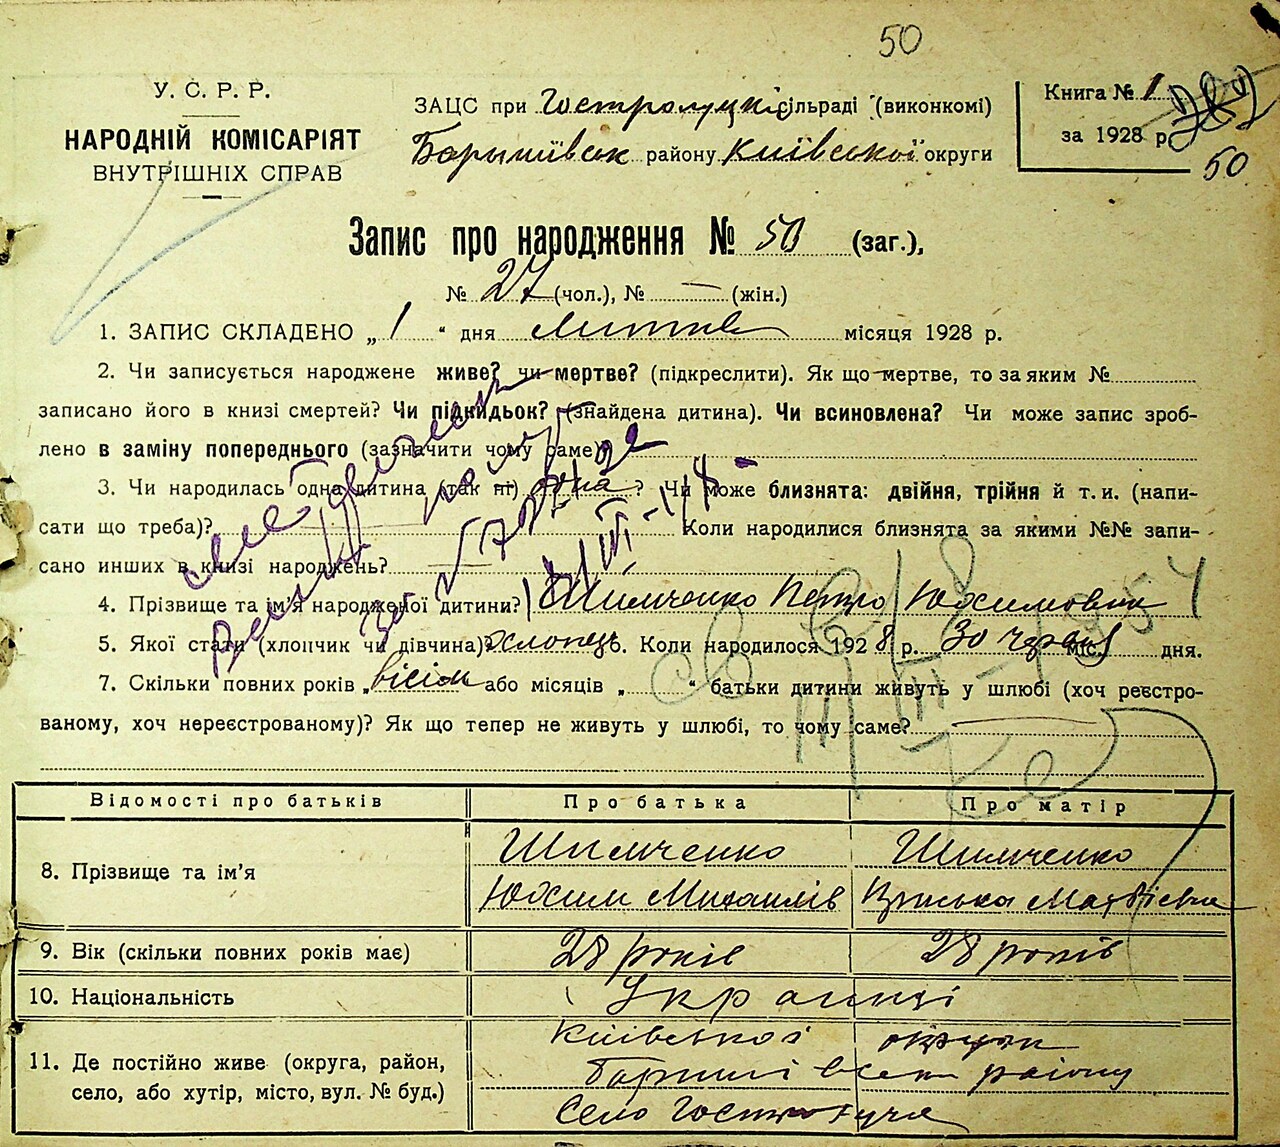 50
У. С. Р. Р.
НАРОДНІЙ КОМІСАРІЯТ
ВНУТРІШНІХ СПРАВ
ЗАЦС при Гостролуцкій сільраді (виконкомі)
Баришівськ району Київської округи
Книга № 1
за 1928 р.
50
Запис про народження № 50 (заг.),
№ 27 (чол.), № — (жін.)
1. ЗАПИС СКЛАДЕНО „1“ дня місяця 1928 р.
2. Чи записується народжене живе? чи мертве? (підкреслити). Як що мертве, то за яким №
записано його в книзі смертей? Чи підкидьок? (знайдена дитина). Чи всиновлена? Чи може запис зроб-
лено в заміну попереднього (зазначити чому саме)
3. Чи народилась одна дитина (так ні) одна? Чи може близнята: двійня, трійня й т. и. (напи-
сати що треба)? Коли народилися близнята за якими №№ запи-
сано инших в книзі народжень?
4. Прізвище та ім'я народженої дитини? Шимченко Петро Юхимович
5. Якої стати (хлопчик чи дівчина)? хлопець 6. Коли народилося 1928 р. 30 червня міс. дня.
7. Скільки повних років „вісім або місяців „ “ батьки дитини живуть у шлюбі (хоч реєстро-
ваному, хоч нереєстрованому)? Як що тепер не живуть у шлюбі, то чому саме?
Відомості про батьків Про батька Про матір
8. Прізвище та ім'я Шимченко Шимченко
Юхим Михайлів Матвіевна
9. Вік (скільки повних років має) 28 років 28 років
10. Національність Українці
11. Де постійно живе (округа, район,
село, або хутір, місто, вул. № буд.)
Київської округи
Баришівськ району
Село Гостролуча